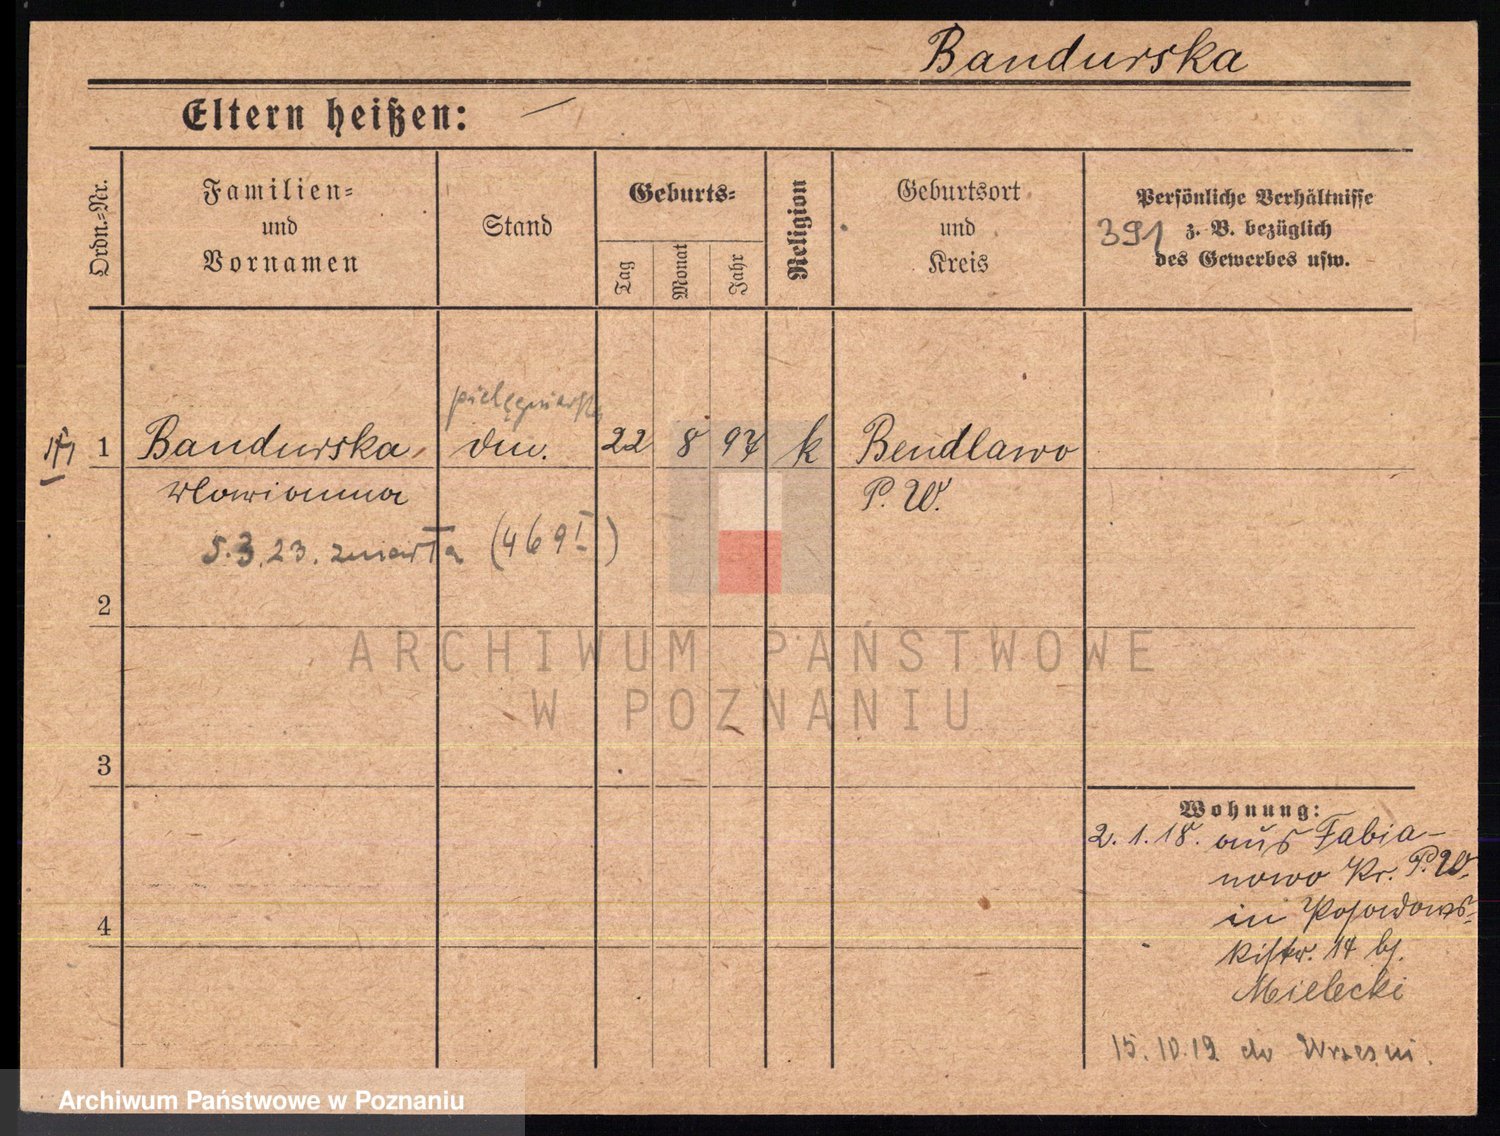 Bandurska
Eltern heißen: —
Ordn.=Nr.
Familien=
und
Vornamen
Stand
Geburts=
Tag
Monat
Jahr
Religion
Geburtsort
und
Kreis
Persönliche Verhältnisse
z. B. bezüglich
des Gewerbes usw.
391
pielęgniarka
1 Bandurska 22 8 97 k Bendlawo
P. W.
5.3.23. zmarła (469 I)
2
3
4
Wohnung:
2. 1. 18. aus Fabia-
nowo Kr. P. W.
in Posadows-
kistr. 14 bj.
Mielecki
15.10.19 do Wrześni.
ARCHIWUM PAŃSTWOWE
W POZNANIU
Archiwum Państwowe w Poznaniu